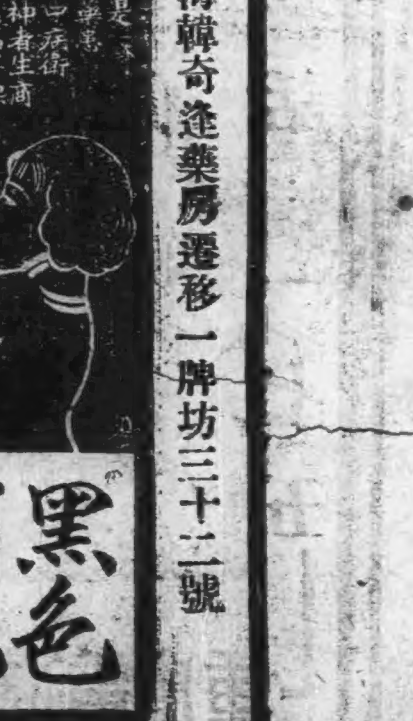 韓奇逢藥房遷移一牌坊三十二號
神者生商
黑色